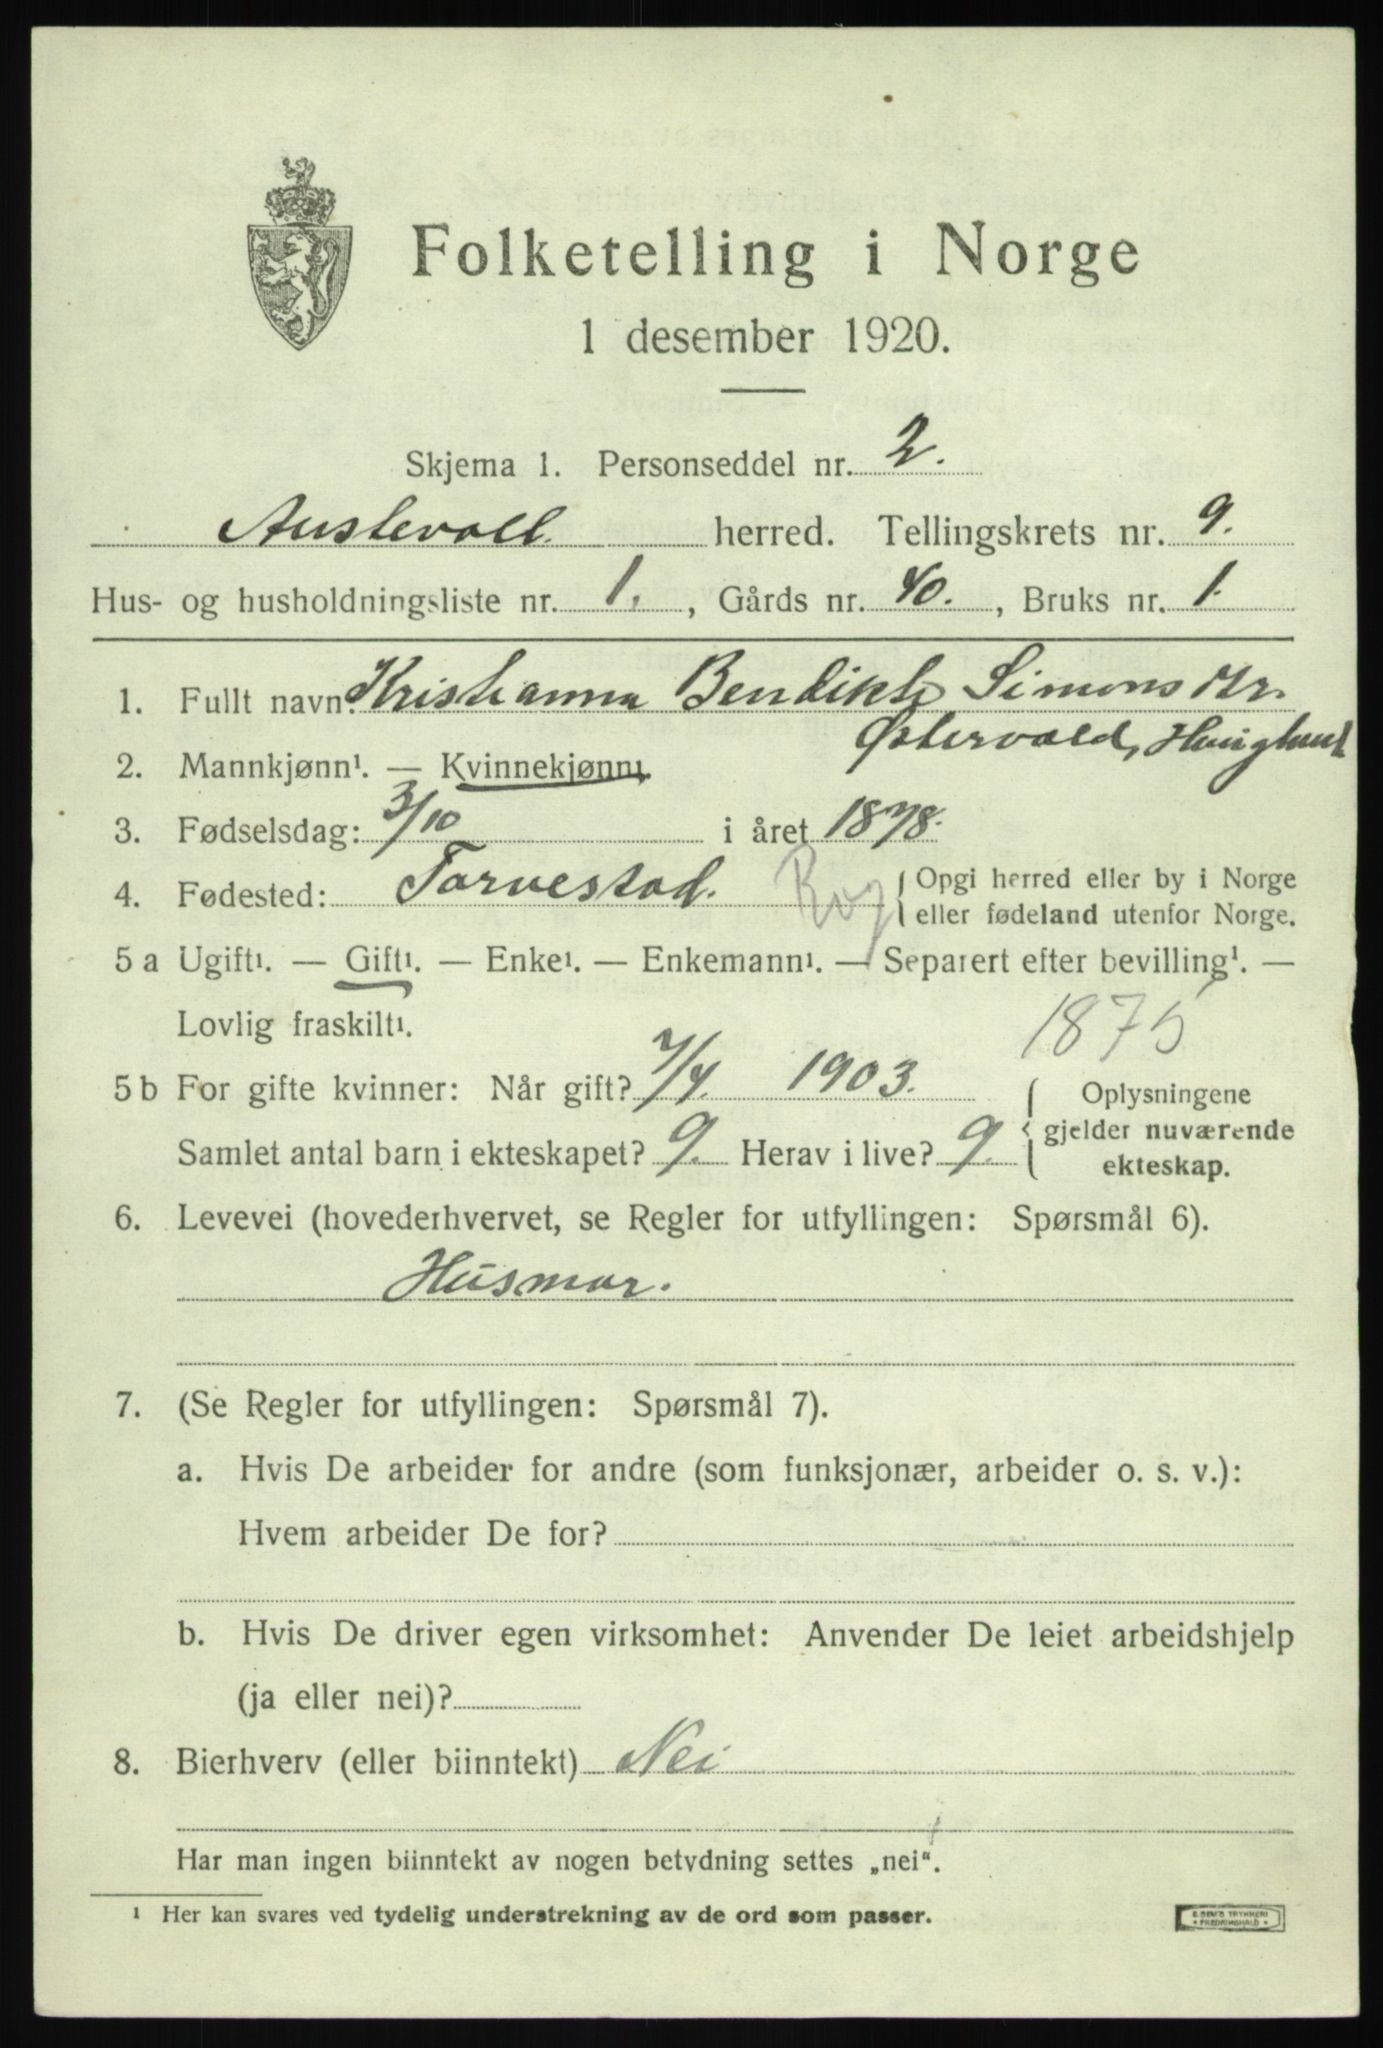 Folketelling i Norge
1 desember 1920.
Skjema 1. Personseddel nr. 2.
Austevoll herred. Tellingskrets nr. 9.
Hus- og husholdningsliste nr. 1., Gårds nr. 40., Bruks nr. 1.
1. Fullt navn: Kristianna Bendikte Simonsdtr.
Østervold, Hauglund
2. Mannkjønn¹. — Kvinnekjønn¹.
3. Fødselsdag: 3/10 i året 1878.
4. Fødested: Torvestad. Rog { Opgi herred eller by i Norge
eller fødeland utenfor Norge.
5 a Ugift¹. — Gift¹. — Enke¹. — Enkemann¹. — Separert efter bevilling¹. —
Lovlig fraskilt¹.
1875
5 b For gifte kvinner: Når gift? 7/4. 1903. { Oplysningene
gjelder nuværende
ekteskap.
Samlet antal barn i ekteskapet? 9. Herav i live? 9.
6. Levevei (hovederhvervet, se Regler for utfyllingen: Spørsmål 6).
Husmor.
7. (Se Regler for utfyllingen: Spørsmål 7).
a. Hvis De arbeider for andre (som funksjonær, arbeider o. s. v.):
Hvem arbeider De for?
b. Hvis De driver egen virksomhet: Anvender De leiet arbeidshjelp
(ja eller nei)?
8. Bierhverv (eller biinntekt) Nei
Har man ingen biinntekt av nogen betydning settes „nei".
¹ Her kan svares ved tydelig understrekning av de ord som passer.